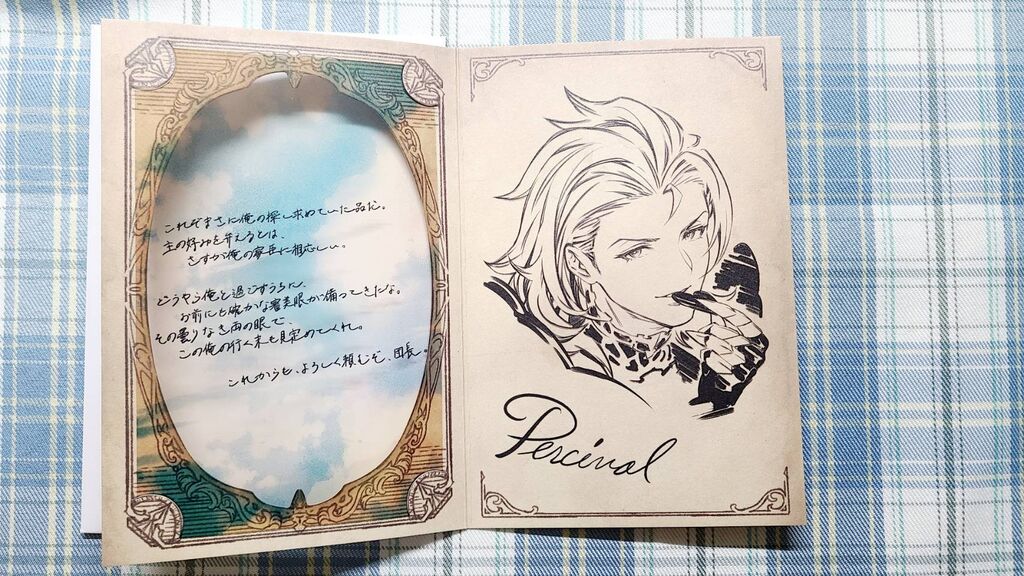 これぞまさに俺の探し求めていた品だ。
主の好みを弁えるとは、
さすが俺の家臣に相応しい。
どうやら俺と過ごすうちに、
お前にも確かな審美眼が備わってきたな。
その曇りなき両の眼で、
この俺の行く末も見定めてくれ。
これからも、よろしく頼むぞ、団長。
Percival